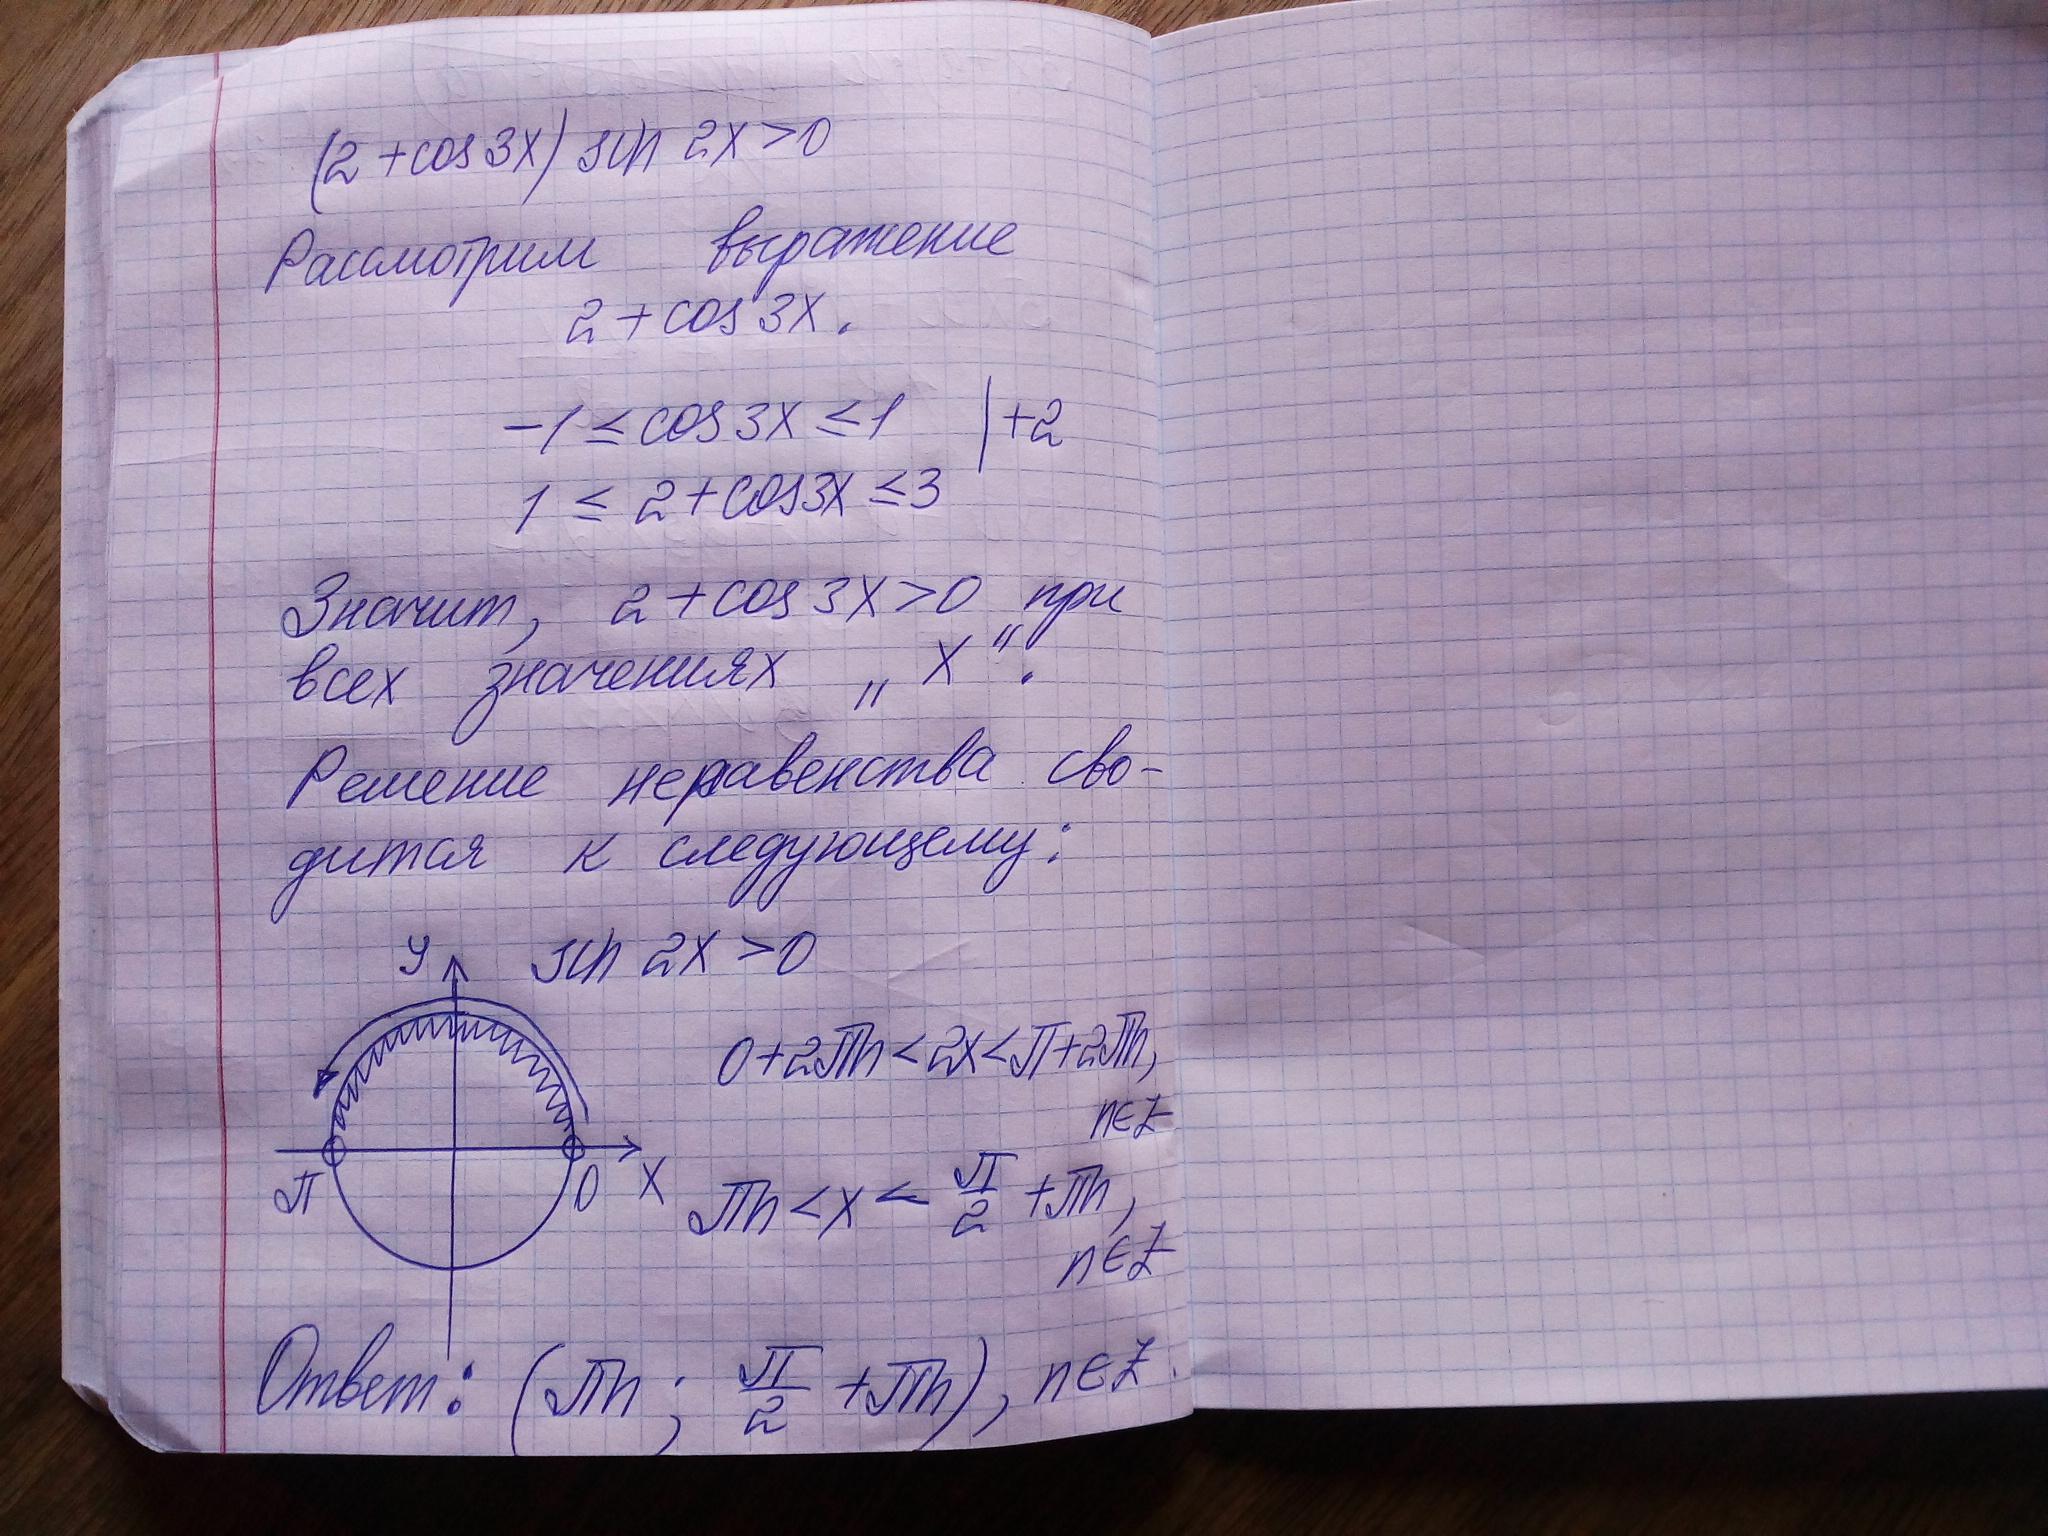 (2+cos3x) sin 2x>0
Рассмотрим выражение
2+cos3x.
-1 ≤ cos3x ≤ 1 |+2
1 ≤ 2+cos3x ≤ 3
Значит, 2+cos3x>0 при
всех значениях „x“.
Решение неравенства сво-
дится к следующему:
y
sin 2x >0
0+2πn<2x<π+2πn,
n∈Z
π 0 x
πn<x< π/2 +πn,
n∈Z
Ответ: (πn; π/2 +πn), n∈Z.